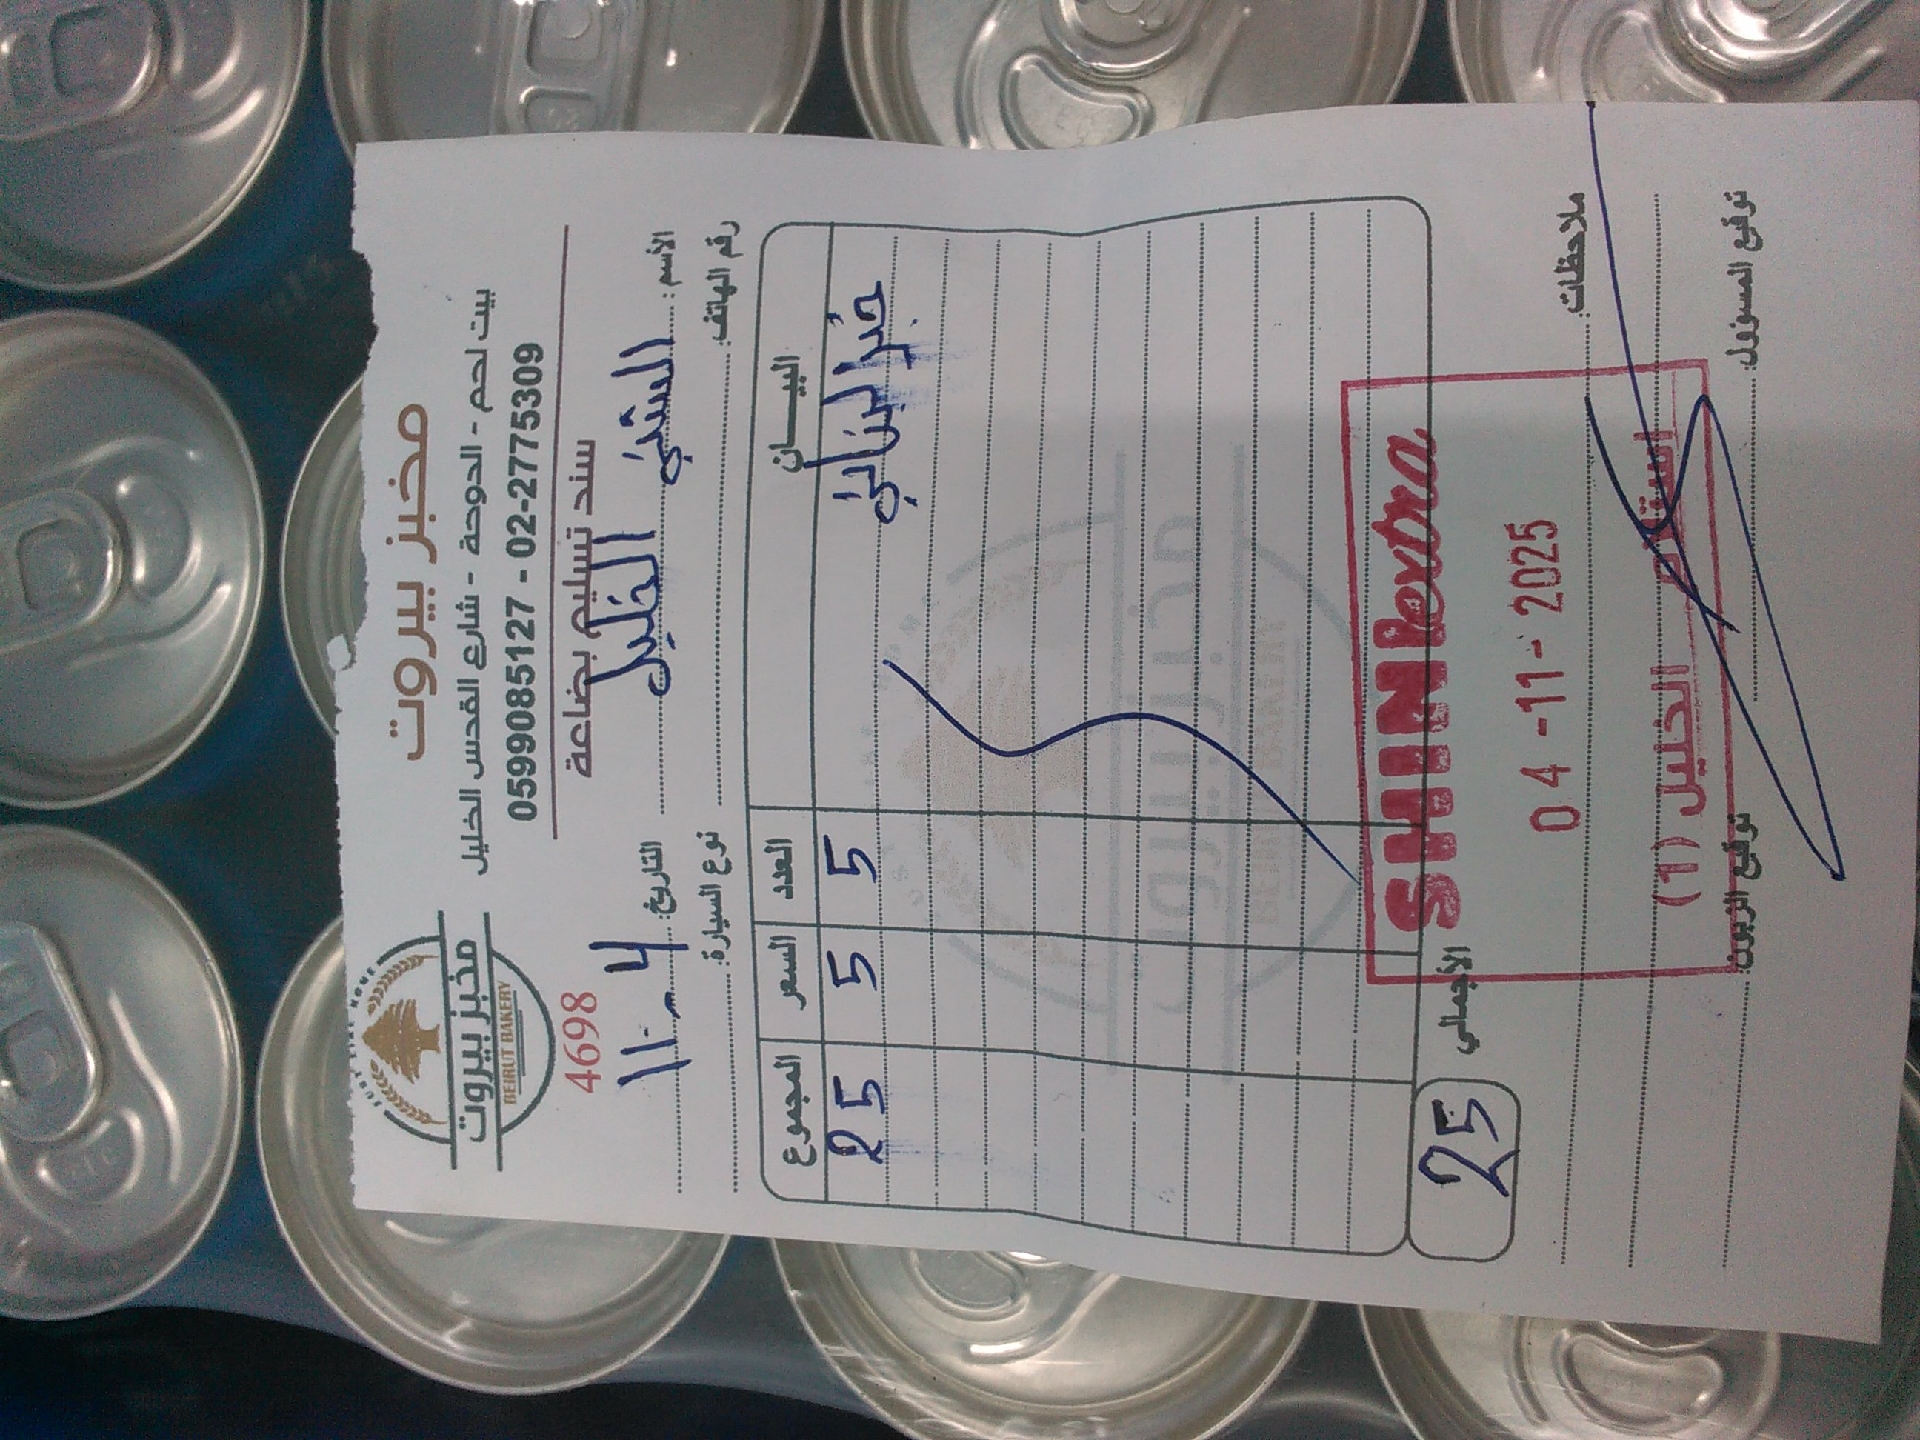 مخبز بيروت
بيت لحم - الدوحة - شارع القدس الخليل
0599085127 - 02-2775309
JUST LIKE HOME
مخبز بيروت
BEIRUT BAKERY
سند تسليم بضاعة
4698
الأسم: الشني الخليل
التاريخ: 4-11
رقم الهاتف:
نوع السيارة:
البيـــان العدد السعر المجموع
خبز لبناني 5 5 25
الأجمالي 25
ملاحظات:
SHINI extra
04-11-2025
استلام
الخليل (1)
توقيع المسؤول:
توقيع الزبون: